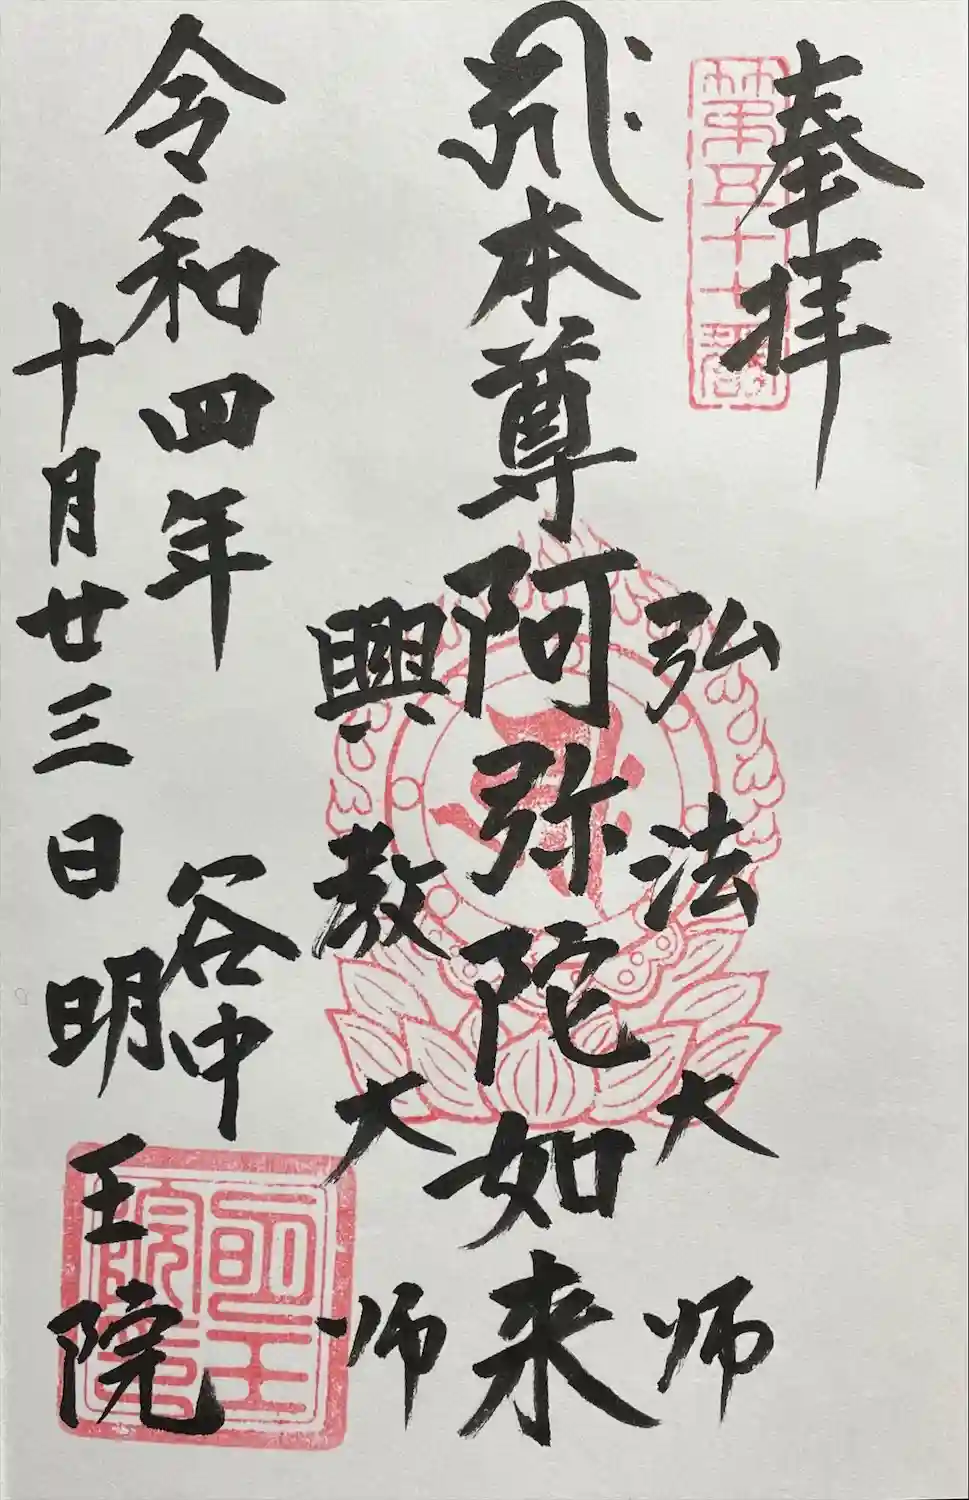 奉拝
第五十七番
弘法大师
𑖮𑖿𑖨𑖱𑖾本尊阿弥陀如来
興教大师
令和四年
十月廿三日
谷中
明王院
明王
院印